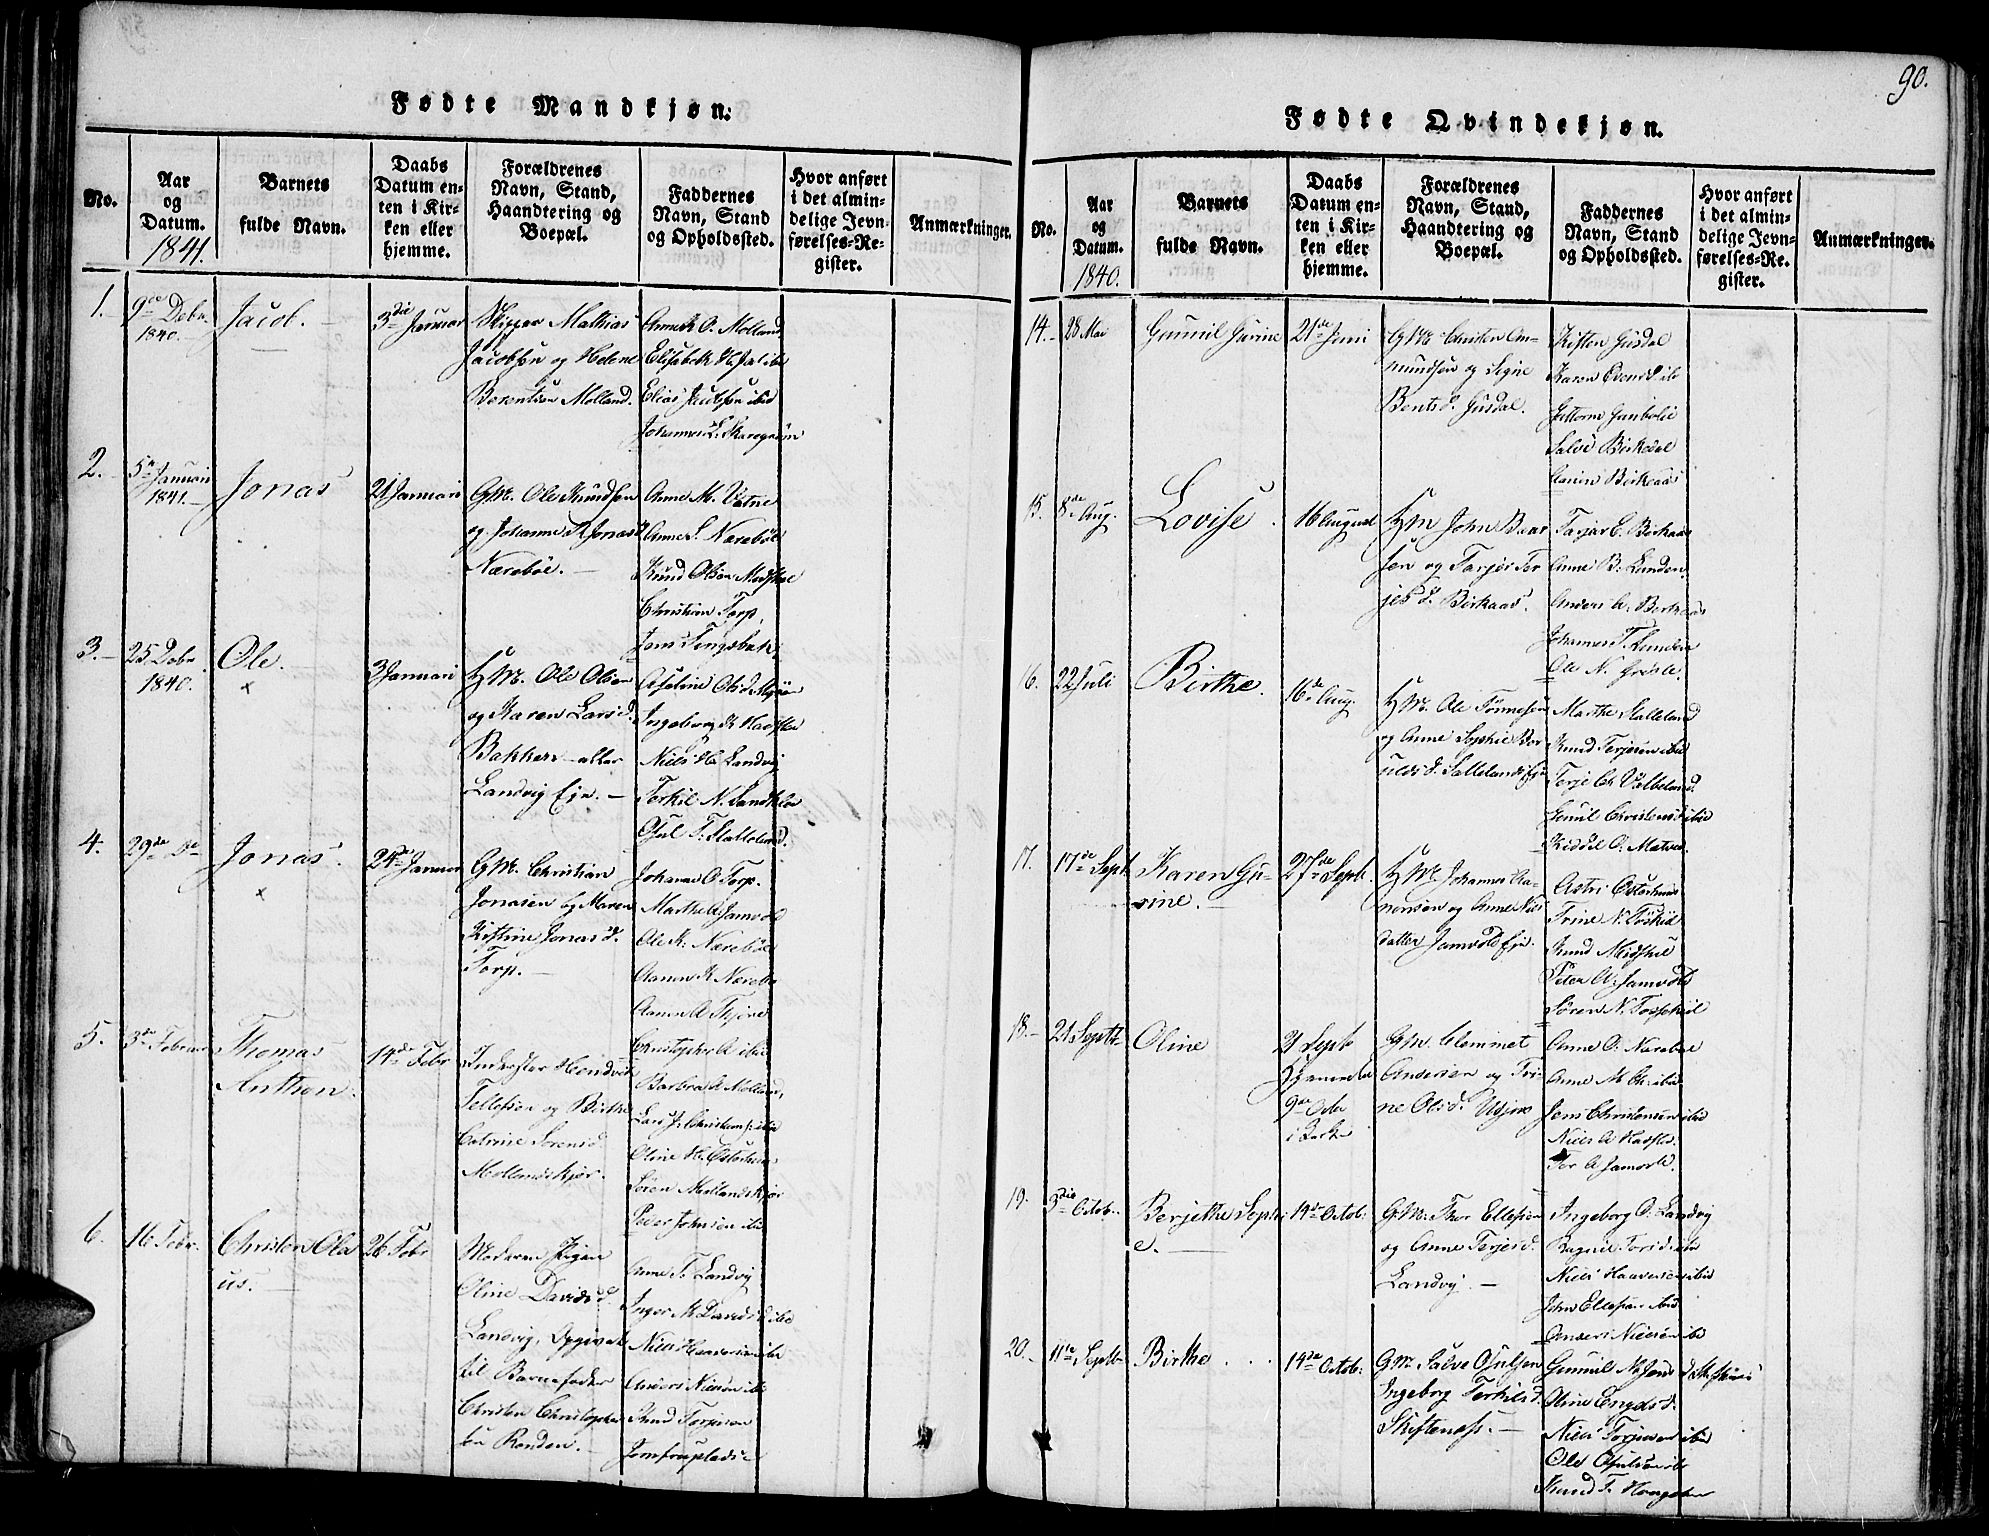 90.
Fødte Mandkjøn:
No.
Aar og Datum. 1841.
Barnets fulde Navn.
Daabs Datum enten i Kirken eller hjemme.
Forældrenes Navn, Stand, Haandtering og Boepæl.
Faddernes Navn, Stand og Opholdssted.
Hvor anført i det almindelige Jevnførelses-Register.
Anmærkninger.
1.
9de Debr.
1840.
Jacob.
3die Januar
Skipper Mathias
Jacobsen og Helene
Berentsen Molland.
Anne K. O. Molland
Elisabeth
Elias Jacobsen ibid
Johannes
2.
5te Januari
1841.
Jonas
21 Januari
G.M. Ole Knudsen
og Johanne K Jonasd
Nærebøe.
Anne M. Vatne
Anne S. Nærebøe
Knud Olsen
Christian Torp,
Jens
3.
25 Debr
1840.
Ole.
3 Januari
H.M. Ole Olsen
og Karen Larsd.
Bakken eller
Landvig Eje.
Aseline Olsd
Ingeborg K
Niels H. Landvig
Terkil N.
Osul T. Stalleland.
4.
29de De
Jonas.
24de Januar
G.M. Christian
Jonasen og Maren
Kistine Jonasd.
Torp.
Johanne O Torp.
Marthe A Jamvold
Ole K. Nærebøe
Aanen K Nærebø
Aanen A
5.
3de Februar
Thomas
Anthon.
14de Febr
Inderster Hendrik
Tellefsen og Birthe
Catrine Sørensd.
Mollandskjør.
Christopher A ibid
Barbra A Molland,
Lars J. Christians. ibid
Oline H.
Søren Mollandskjær
Peder Johnsen ibid
6.
16 Febr.
Christen Ola
us.
26 Febr
Moderen Pigen
Oline Davidsd.
Landvig, Opgivet
til Barnefader
Christen Christopher
sen Ronden.
Anne T. Landvig
Inger M Davidsd ibid
Niels Haaversen ibid
Anders Nielsen ibid
Knud Torjussen
Jomfrupladsen
Fødte Qvindekjøn.
No.
Aar og Datum. 1840.
Barnets fulde Navn.
Daabs Datum enten i Kirken eller hjemme.
Forældrenes Navn, Stand, Haandtering og Boepæl.
Faddernes Navn, Stand og Opholdssted.
Hvor anført i det almindelige Jevnførelses-Register.
Anmærkninger.
14.
28 Mai
Gunnil Gurine
21de Juni
G.M. Christen Am-
mundsen og Signe
Bentsd. Gusdal.
Kisten Gusdal
Karen Evensd ibi
Guttorm
Salve Birkedal
Birkeaas
15.
8de Aug.
Lovise.
16 August
H.M John Baar
sen og Tarjer Ter
jesd. Birkaas.
Tarjer C. Birkaas
Anne B. Lunden.
Anders A. Birkaas
Johannes T. Lunden
Ole N. Grødle.
16.
22 Juli
Birthe.
16de Aug.
H.M. Ole Tønnesen
og Anne Sophie Bor
uldsd. Sallelands Eje
Marthe Stalleland
Knud Terjesen ibid
Terje Ch Valbeland.
Gunil Christensd ibid
Kiddil O.
17.
17de Sept.
Karen Gu-
rine.
27de Sept.
H.M. Johannes Aa-
nonsen og Anne Niels
datter Jamvold Eje.
Astri Osterhuus
Trine N.
Knud Midskil
Peter A. Jamvold
Søren N.
18.
21 Septb
Oline
21 Sept
Hjemme
9de Octbr
i Kirke
G.M. Clemmet
Andersen og Tri-
ne Olsd.
Anne O. Nærebøe
Anne M. Ch. ibid
Jens Christensen ibid
Niels A
Tor A Jamvold.
19.
3die Octob.
Berjethe Sophi
e.
14de Octob:
G.M. Thor Ellefsen
og Anne Terjesd.
Landvig.
Ingeborg O. Landvig
Ragnil Torsd. ibid
Niels Haaversen ibid
John Ellefsen ibid
Anders Nielsen ibid
20.
11te Septb
Birthe
14de Octob:
G.M Salve Osulsen
Ingeborg Terkilsd.
Skiftenæs.
Gunnil N. Jensd Skiftenæs
Oline Engelsd.
Niels Torjusen ibid
Ole Osulsen ib
Knud T.